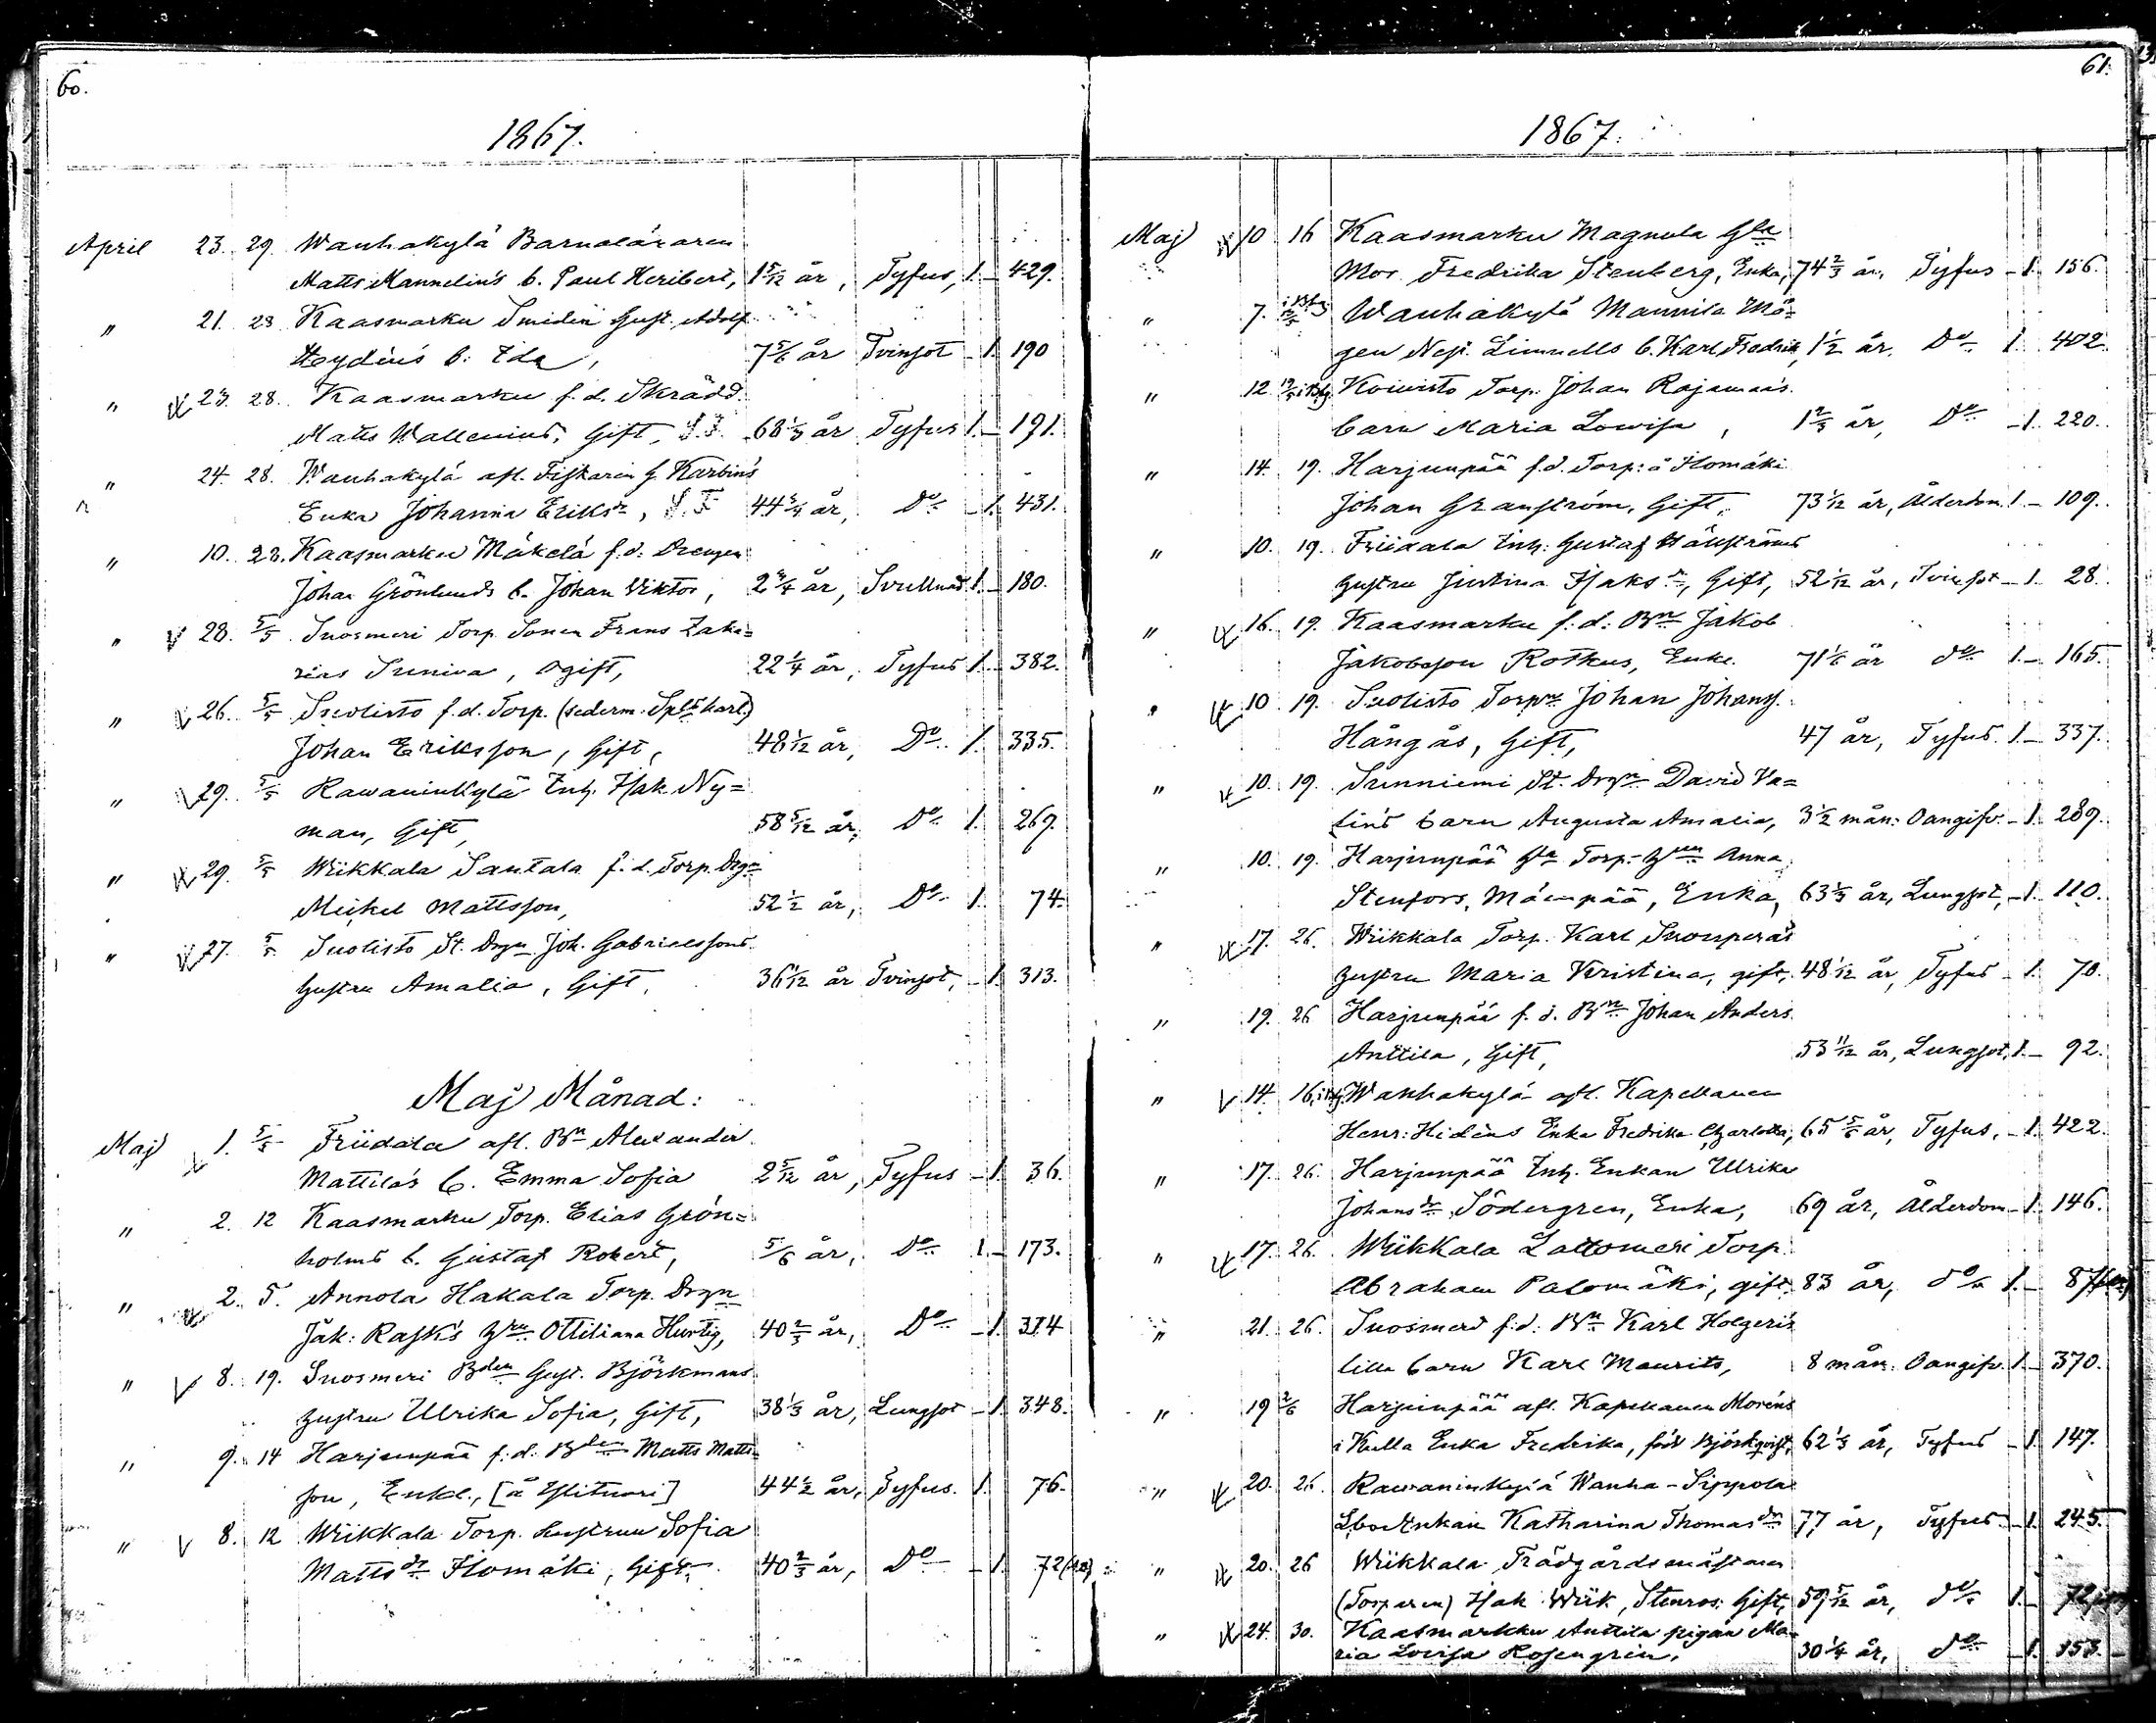 60.
1867.
April 23. 29. Wanhakylä Barnaläraren
Matts Mannelin's b. Paul Heribert, 1 5/12 år, Tyfus, 1. — 429.
" 21. 23 Kaasmarku Smeden Gust. Adolf
Heydéns b. Ida, 7 5/6 år Tvinsot — 1. 190
" 23. 28. Kaasmarku f. d. Skrädd.
Matts Wallenius, Gift, 68 1/3 år Tyfus 1. — 191.
" 24. 28. Wanhakylä afl. Fiskaren G. Karbin's
Enka Johanna Eriksdr, 44 3/4 år, Do — 1. 431.
" 10. 22. Kaasmarku Mäkelä f. d. Drengen
Johan Grönlunds b. Johan Viktor, 2 3/4 år, Svullnad 1. — 180.
" 28. 5/5 Suosmeri Torp. Sonen Frans Zaka=
rias Suniva, ogift, 22 1/4 år, Tyfus 1. — 382.
" 26. 5/5 Suolisto f. d. Torp. (sederm. Spltkarl)
Johan Eriksson, Gift, 48 1/12 år, Do 1. 335.
" 29. 5/5 Rawaninkylä Inh. Isak Ny=
man, Gift, 58 5/12 år, Do 1. 269.
" 29. 5/5 Wiikkala Santala f. d. Torp. Dgn
Mickel Mattsson, 52 1/2 år, Do 1. 74.
" 27. 5/5 Suolisto St. Drgn Joh. Gabrielssons
hustru Amalia, Gift, 36 1/12 år Tvinsot, — 1. 313.
Maj Månad:
Maj 1. 5/5 Friidala afl. Bn Alexander
Mattila's b. Emma Sofia 2 5/12 år, Tyfus — 1. 36.
" 2. 12 Kaasmarku Torp. Elias Grön=
holms b. Gustaf Robert, 5/6 år, Do 1. — 173.
" 2. 5. Annola Hakala Torp. Drgn
Jak: Rask's Hru Ottiliana Hurtig, 40 2/3 år, Do — 1. 314
" 8. 19. Suosmeri Bden Gust. Björkmans
hustru Ulrika Sofia, Gift, 38 1/3 år, Lungsot — 1. 348.
" 9. 14 Harjunpää f. d. Bden Matts Matts
son, Enkl., [å Ylituori] 44 1/2 år, Tyfus. 1. 76.
" 8. 12 Wiikkala Torp. hustrun Sofia
Mattsdr Ilomäki, Gift. 40 2/3 år, Do — 1. 72
61.
1867.
Maj 10 16 Kaasmarku Magnula Gla
Mor Fredrika Stenberg, Enka, 74 2/3 år, Tyfus — 1. 156.
" 7. Wanhakylä Mannila Må=
gen Nest. Linnells b. Karl Fredrik, 1 1/2 år, Do 1. 402.
" 12 Koivisto Torp. Johan Rajamaas
barn Maria Lowisa, 1 2/3 år, Do — 1. 220.
" 14. 19. Harjunpää f. d. Torp: å Ilomäki
Johan Granström, Gift, 73 1/12 år, Ålderdom 1. — 109.
" 10. 19. Friidala Inh: Gustaf Hällströms
hustru Justina Isaksdr, Gift, 52 1/12 år, Tvinsot — 1. 28.
" 16. 19. Kaasmarku f. d. Bn Jakob
Jakobsson Rotkus, Enkl. 71 1/6 år do 1. — 165.
" 10 19. Suolisto Torpn Johan Johanss.
Hångås, Gift, 47 år, Tyfus. 1. — 337.
" 10. 19. Sunniemi St. Drgn David Va=
lins barn Augusta Amalia, 3 1/2 mån: Oangifv. — 1. 289.
" 10. 19. Harjunpää Gla Torp-Hrun Anna
Stenfors, Mäenpää, Enka, 63 1/3 år, Lungsot, — 1. 110.
" 17. 26. Wiikkala Torp. Karl Suonperäs
hustru Maria Kristina, gift, 48 1/12 år, Tyfus — 1. 70.
" 19. 26 Harjunpää f. d. Bn Johan Anders
Anttila, Gift, 53 11/12 år, Lungsot, 1. — 92.
" 14. 16 Wakhakylä afl. Kapellanen
Henr: Hidéns Enka Fredrika Charlotta, 65 5/6 år, Tyfus, — 1. 422.
" 17. 26. Harjunpää Inh. Enkan Ulrika
Johansdr Södergren, Enka, 69 år, Ålderdom — 1. 146.
" 17. 26. Wiikkala Lattomeri Torp.
Abraham Palomäki, gift, 83 år, do 1. — 87
" 21. 26. Suosmeri f. d. Bn Karl Holgeris
lilla barn Karl Maurits, 8 mån. Oangifv. 1. — 370.
" 19 2/6 Harjunpää afl. Kapellanen Moréns
i Kulla Enka Fredrika, född Björkqvist, 62 1/3 år, Tyfus — 1. 147.
" 20. 26. Rawaninkylä Wanha-Sippola
Enkan Katharina Thomasdr 77 år, Tyfus. — 1. 245.
" 20. 26 Wiikkala Trädgårdsmästaren
(Torparen) Isak Wiik, Stenros: Gift, 59 5/12 år, do 1. — 72
" 24. 30. Kaasmarkku Anttila pigan Ma=
ria Lovisa Rosengrén, 30 1/4 år, do — 1. 153.